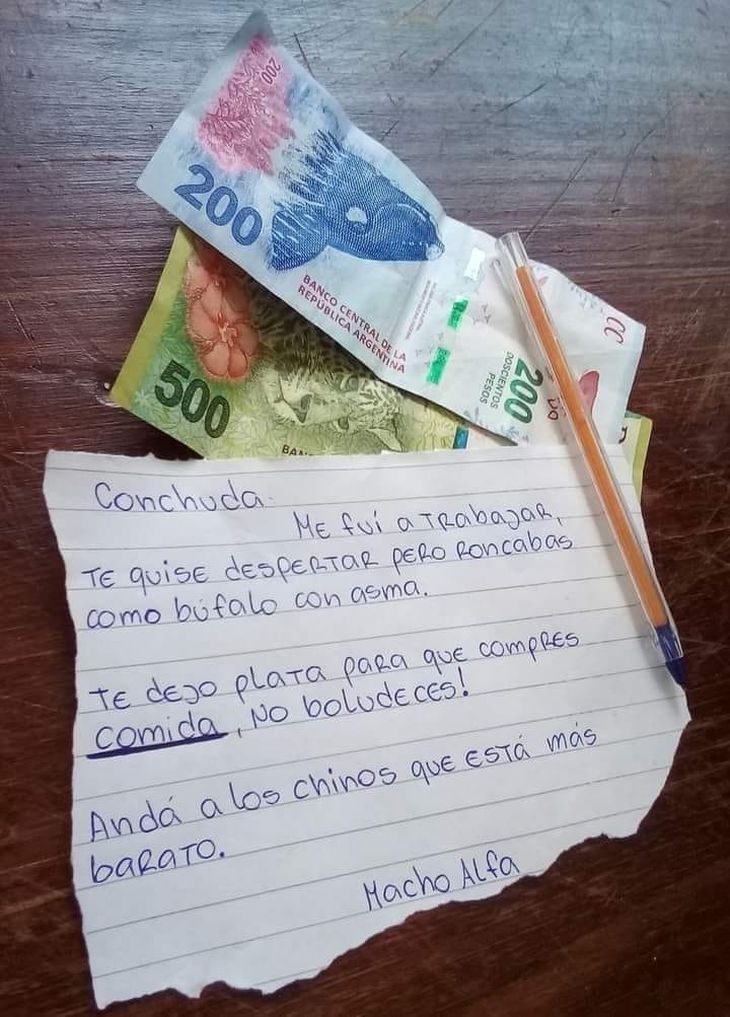 200
200
BANCO CENTRAL DE LA
REPÚBLICA ARGENTINA
200
DOSCIENTOS
PESOS
CC
500
BAN
Conchuda.
Me fuí a trabajar,
te quise despertar pero roncabas
como búfalo con asma.
te dejo plata para que compres
comida, no boludeces!
Andá a los chinos que está más
barato.
Macho Alfa